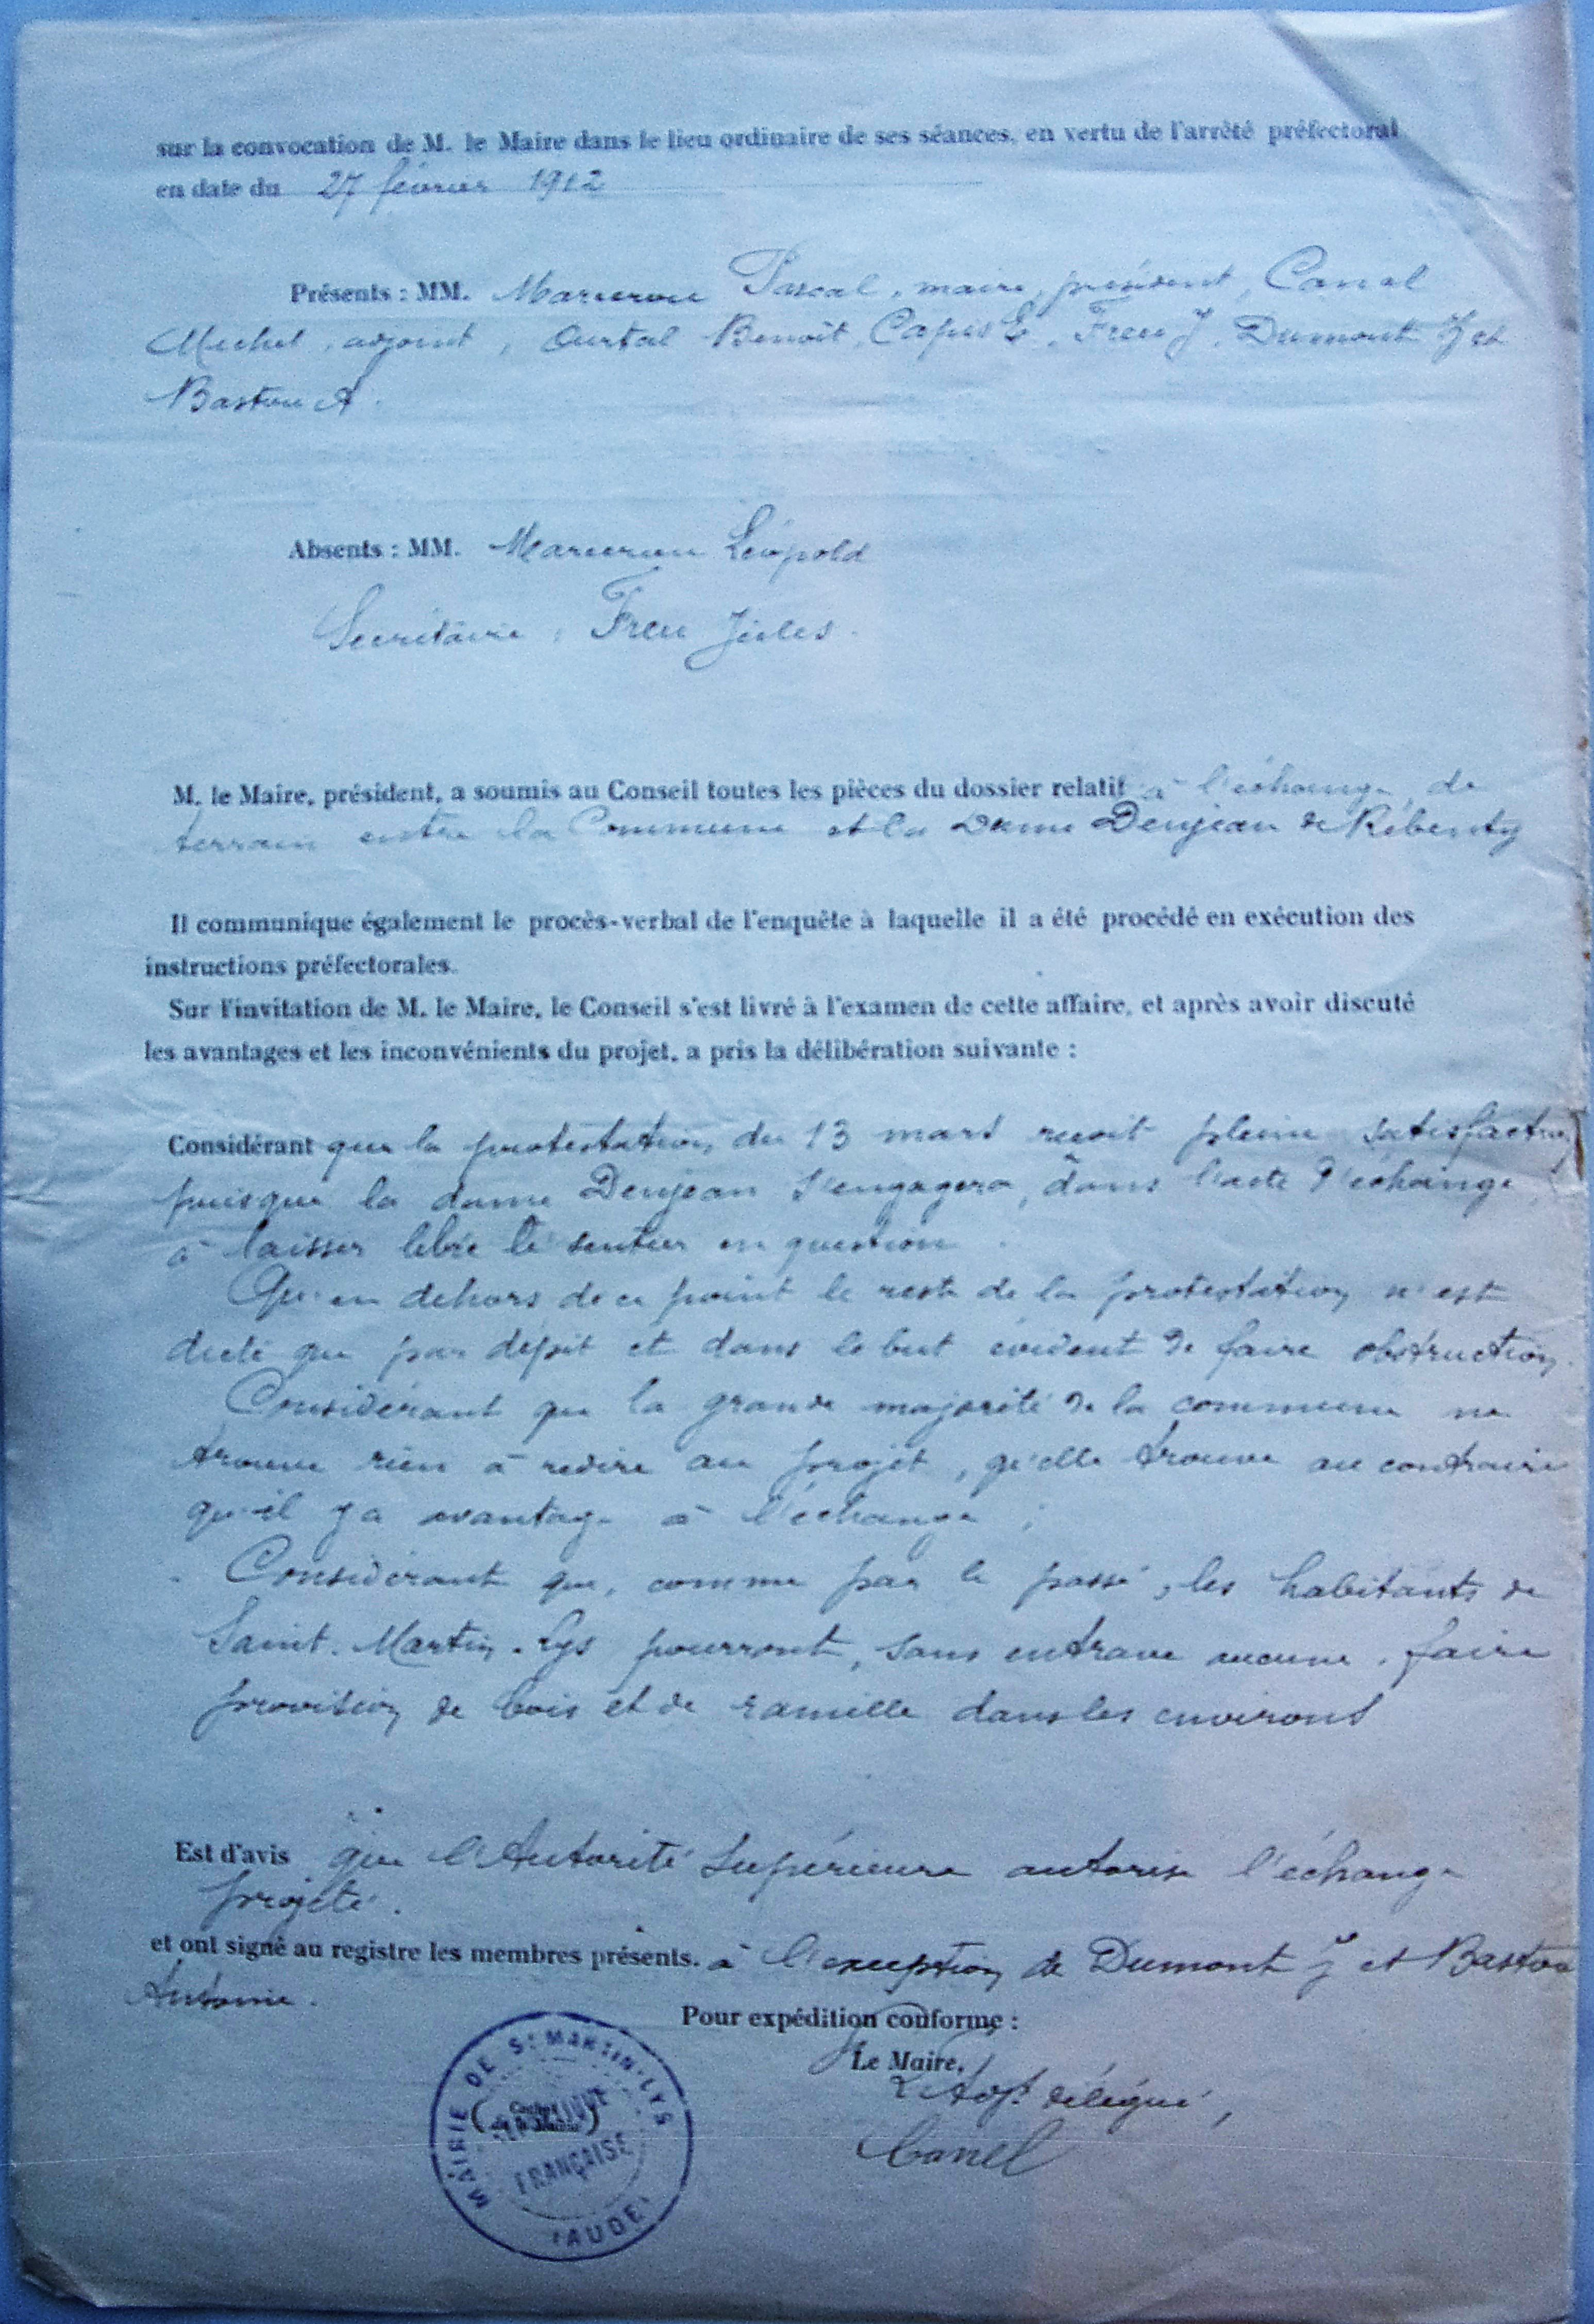 sur la convocation de M. le Maire dans le lieu ordinaire de ses séances, en vertu de l'arrêté préfectoral
en date du 27 février 1912
Présents : MM. Pascal, maire, président, Canel
Michel, adjoint, Benoît, Capus E, Freu J, Dumont J et
Bastou A.
Absents : MM. Léopold
Secrétaire, Freu Jules.
M. le Maire, président, a soumis au Conseil toutes les pièces du dossier relatif à l'échange de
terrain entre la Commune et la Dame Denjean de Rébenty
Il communique également le procès-verbal de l'enquête à laquelle il a été procédé en exécution des
instructions préfectorales.
Sur l'invitation de M. le Maire, le Conseil s'est livré à l'examen de cette affaire, et après avoir discuté
les avantages et les inconvénients du projet, a pris la délibération suivante :
Considérant que la protestation du 13 mars reçoit pleine satisfaction
puisque la dame Denjean s'engagera, dans l'acte d'échange,
à laisser libre le sentier en question.
Qu'en dehors de ce point le reste de la protestation n'est
dicté que par dépit et dans le but évident de faire obstruction.
Considérant que la grande majorité de la commune ne
trouve rien à redire au projet, qu'elle trouve au contraire
qu'il y a avantage à l'échange ;
Considérant que, comme par le passé, les habitants de
Saint-Martin-Lys pourront, sans entrave aucune, faire
provision de bois et de ramille dans les environs
Est d'avis que l'Autorité Supérieure autorise l'échange
projeté.
et ont signé au registre les membres présents. à l'exception de Dumont J et Bastou
Antonin.
Pour expédition conforme :
Le Maire,
L'Adjt délégué,
Canel
MAIRIE DE ST MARTIN-LYS
(Cachet de la Mairie)
RÉPUBLIQUE
FRANÇAISE
(AUDE)